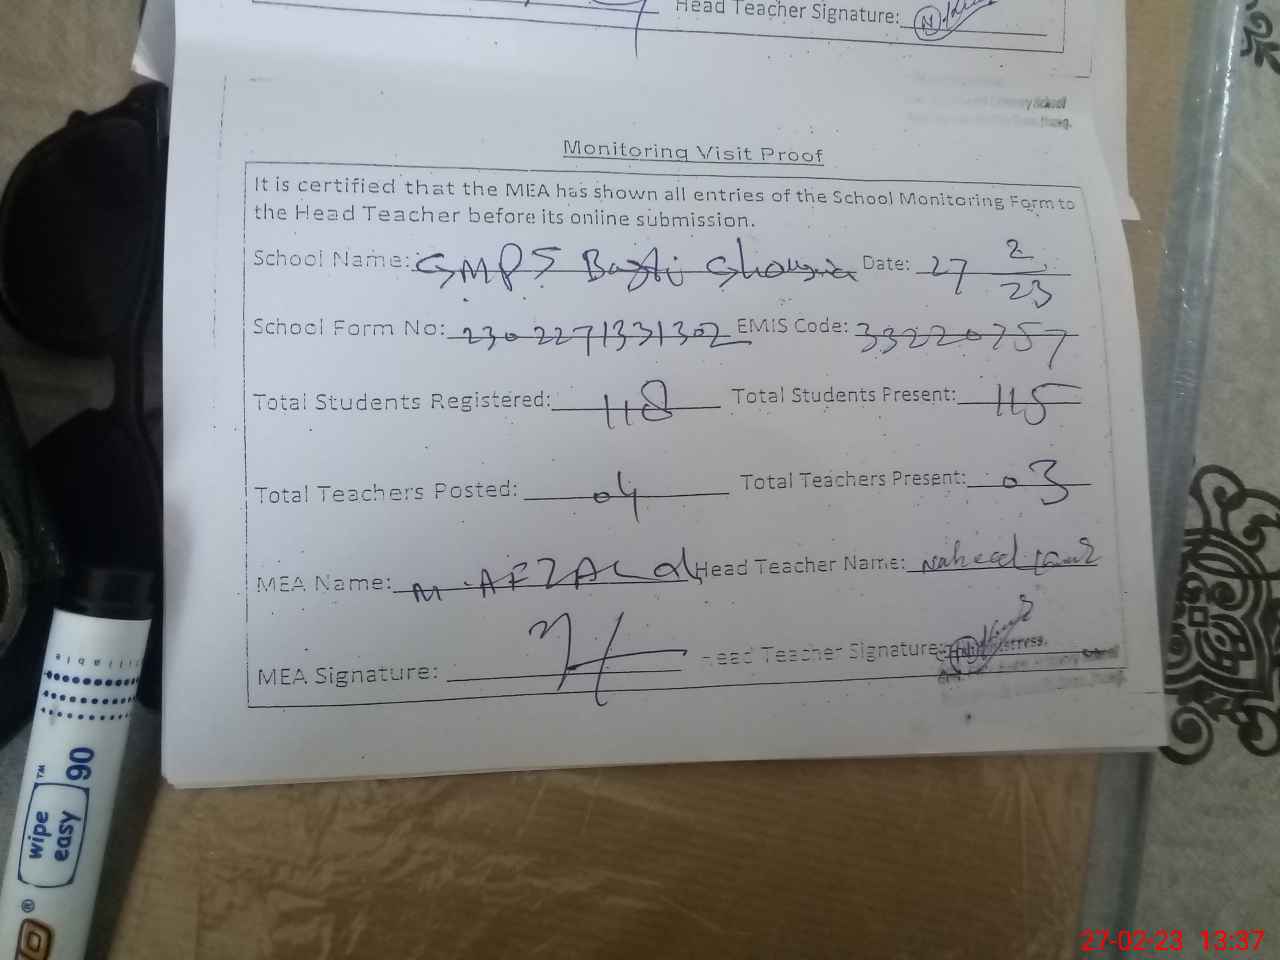 Head Teacher Signature:
Monitoring Visit Proof
It is certified that the MEA has shown all entries of the School Monitoring Form to
the Head Teacher before its online submission.
School Name: GMPS Basti Ghousia Date: 27 2/23
School Form No: 2302271331302 EMIS Code: 33220757
Total Students Registered: 118 Total Students Present: 115
Total Teachers Posted: 04 Total Teachers Present: 03
MEA Name: M. AFZAL Head Teacher Name: Naheed
MEA Signature: Head Teacher Signature:
wipe
easy
90
27-02-23 13:37